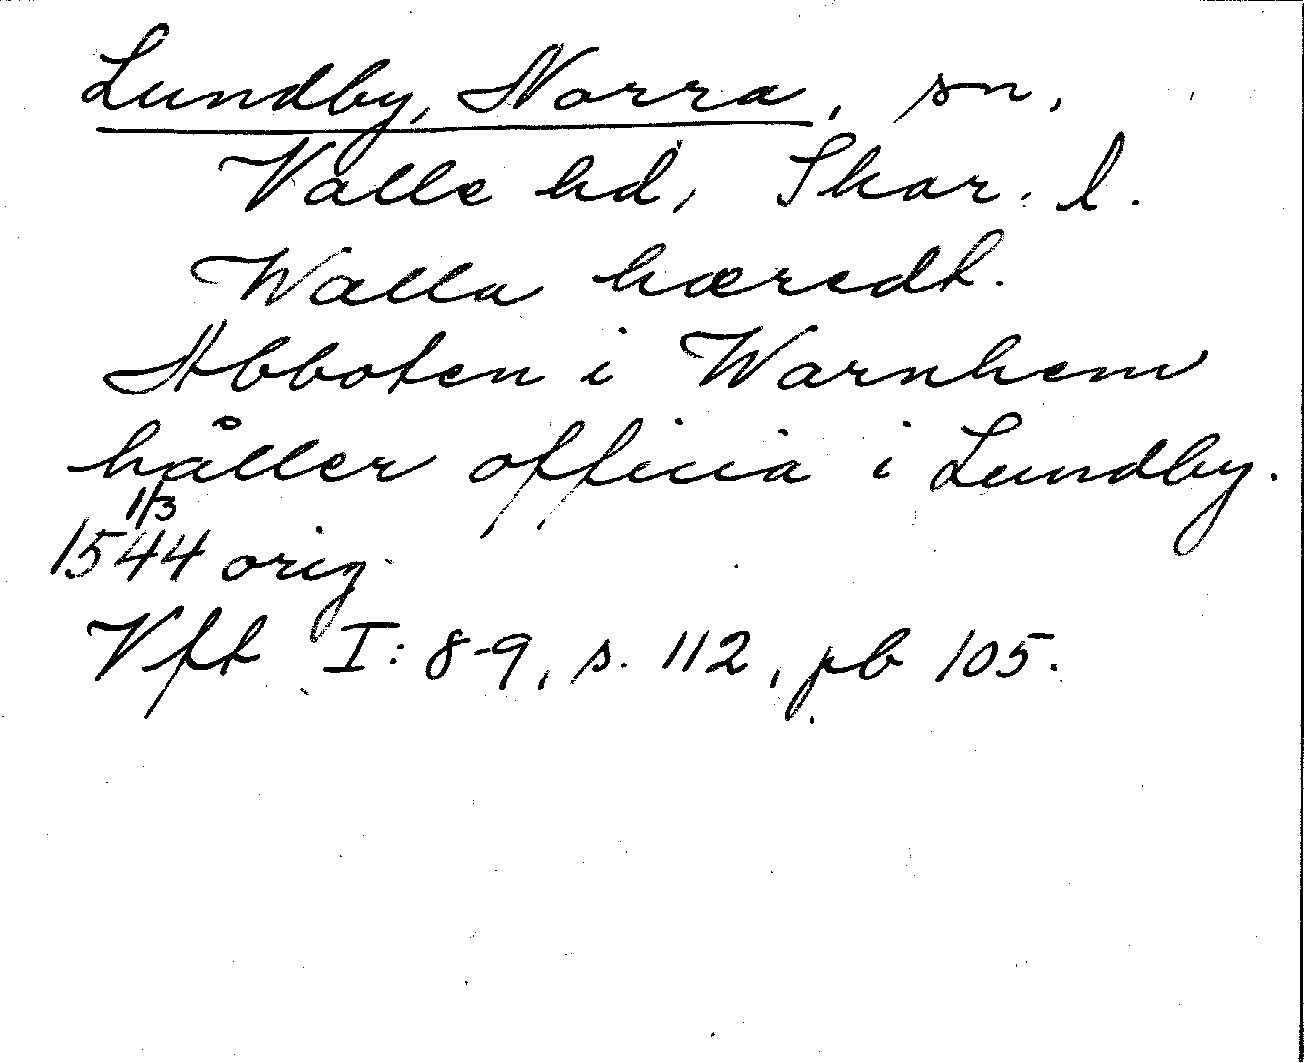 Lundby, Norra, sn,
Valle hd, Skar. l.
Walla hæredt.
Abboten i Warnhem
håller officia i Lundby.
1/3
1544 orig.
Vft I: 8-9, s. 112, pb 105.